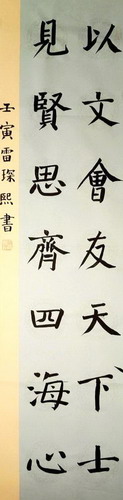 以文會友天下士
見賢思齊四海心
壬寅雷琛熙書